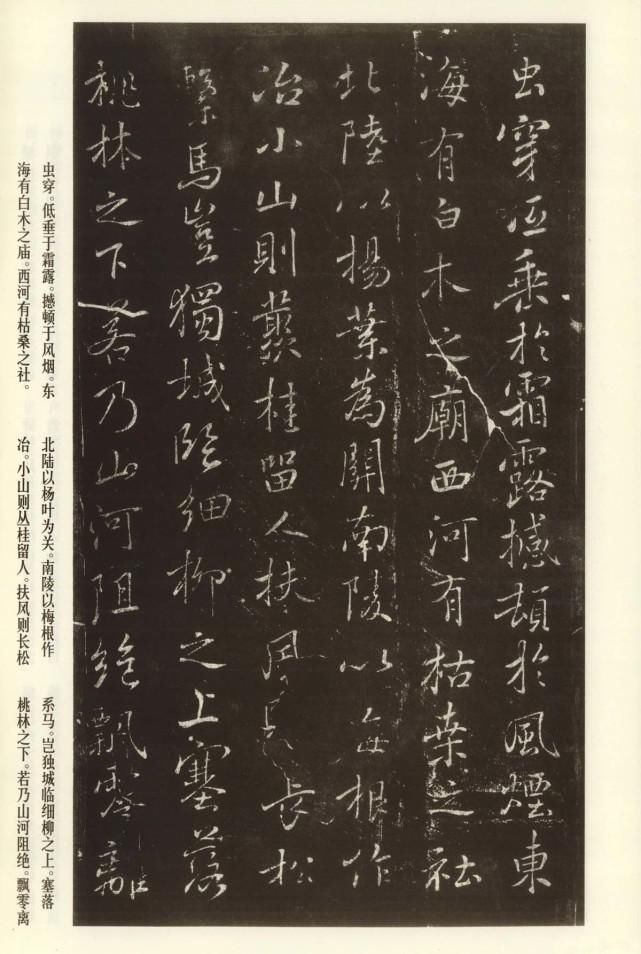 虫穿低垂於霜露撼頓於風煙東
海有白木之廟西河有枯桒之社
北陸以楊葉為關南陵以每根作
冶小山則叢桂留人扶風則長松
繫馬豈獨城臨細柳之上塞落
桃林之下若乃山河阻絶飄零離
虫穿。低垂于霜露。撼顿于风烟。东
海有白木之庙。西河有枯桑之社。
北陆以杨叶为关。南陵以梅根作
冶。小山则丛桂留人。扶风则长松
系马。岂独城临细柳之上。塞落
桃林之下。若乃山河阻绝。飘零离